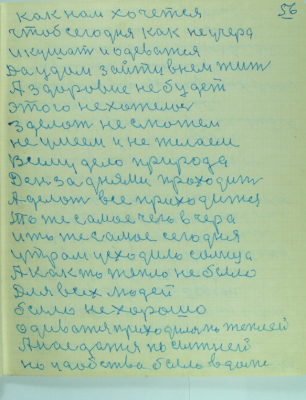 56
как нам хочется
чтоб сегодня как не учера
и кушат и одеватся
Да удом зайти внем жит
А здаровие не будет
этого не хожемо
зделат не сможем
не умеем и не желаем
Всему дело природа
Ден за днями проходит
А делат все приходится
То же самое чего вчера
и то же самое сегодня
утрам усходило солнца
А как то тепло не было
Для всех людей
было не хорошо
одиватся приходилос теплей
А наедатся посытней
но удобства было в доме